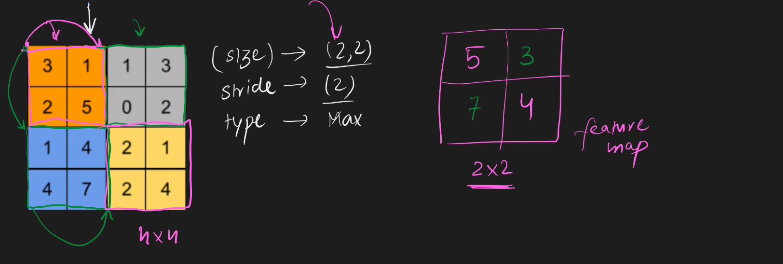 3 1 1 3
2 5 0 2
1 4 2 1
4 7 2 4
4×4
(size) → (2,2)
stride → (2)
type → Max
5 3
7 4
2×2
feature
map